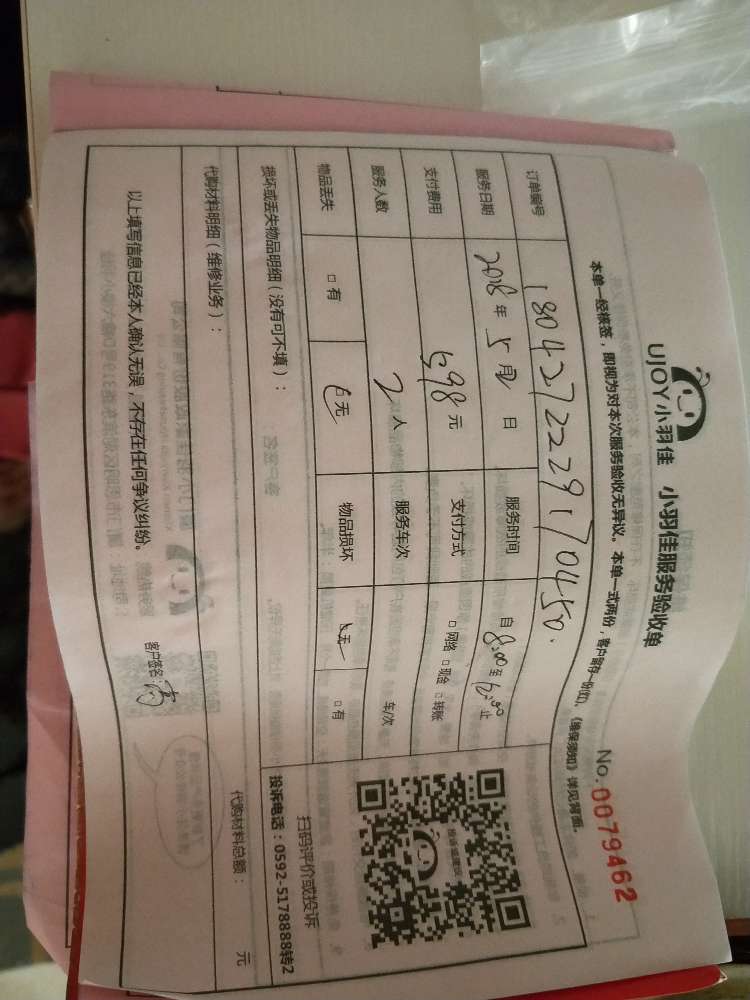 UJOY小羽佳 小羽佳服务验收单
No.0079462
本单一经核签，即视为对本次服务验收无异议。本单一式两份，客户留存一份(红)，《维保须知》详见背面。
订单编号 1804272229170450
服务日期 2018年5月2日 服务时间 自8:00至12:00止
支付费用 598元 支付方式 □网络 □现金 □转账
服务人数 2人 服务车次 车/次
物品丢失 □有 □无 物品损坏 □无 □有
扫码评价或投诉
投诉电话：0592-5178888转2
损坏或丢失物品明细（没有可不填）：
代购材料明细（维修业务）：
代购材料总额： 元
以上填写信息已经本人确认无误，不存在任何争议纠纷。
客户签名：